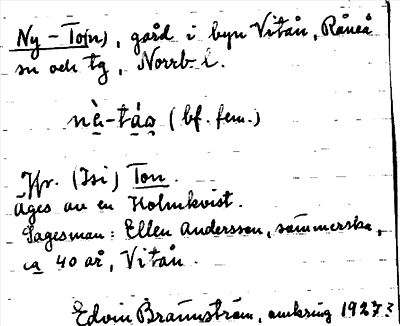 Ny-To(n), gård i byn Vitån, Råneå
sn och tg, Norrb. l.
nè̱-tá̱o̱ (bf. fem.)
Jfr. (Isi) Ton.
Äges av en Holmkvist.
Sagesman: Ellen Andersson, sömmerska,
ca 40 år, Vitån.
Edvin Brännström, omkring 1927?